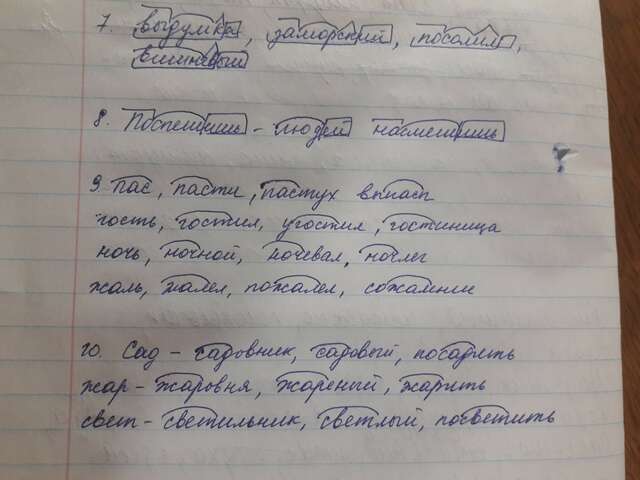 7. выдумка, заморский, посолил,
вишневый
8. Поспешишь - людей насмешишь
9. пас, пасти, пастух
гость, гостил, угостил, гостиница
ночь, ночной, ночевал, ночлег
жаль, жалел, пожалел,
10. Сад - садовник, садовый, посадить
жар - жаровня, жареный, жарить
свет - светильник, светлый, посветить